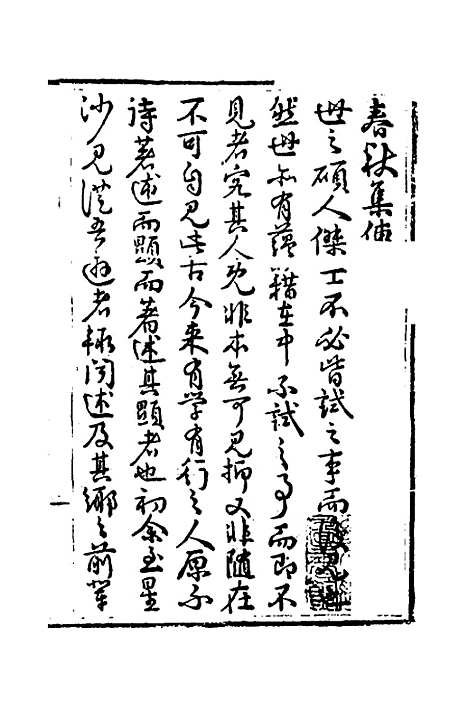 春秋集傳
世之碩人傑士不必皆試之事而
然世亦有蘊籍在中不試之事而即不
見者究其人既非本無可見抑又非隨在
不可自見從古今來有學有行之人原不
待著述而顯而著述其顯者也初余至星
沙見從吾遊者輒間述及其鄉之前輩
一